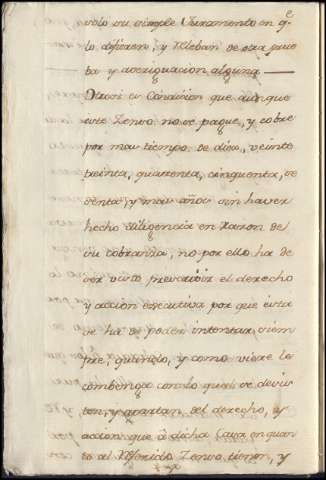 solo su simple Juramento en q.e
lo difieren, y relevan de otra prue
ba y averiguacion alguna
Otrosi es Condicion que aunque
este Zenso no se pague, y cobre
por mas tiempo de diez, veinte
treinta, quarenta, cinquenta, se
senta, y mas años sin haver
hecho diligencia en razon de
su cobranza, no por ello ha de
ser visto prescrivir el derecho
y accion executiva por que esta
se ha de poder intentar, siem
pre, quando, y como viere le
combenga con lo qual se desis
ten, y apartan del derecho, y
accion que â dicha Casa en quan
to al referido Zenso tienen, y